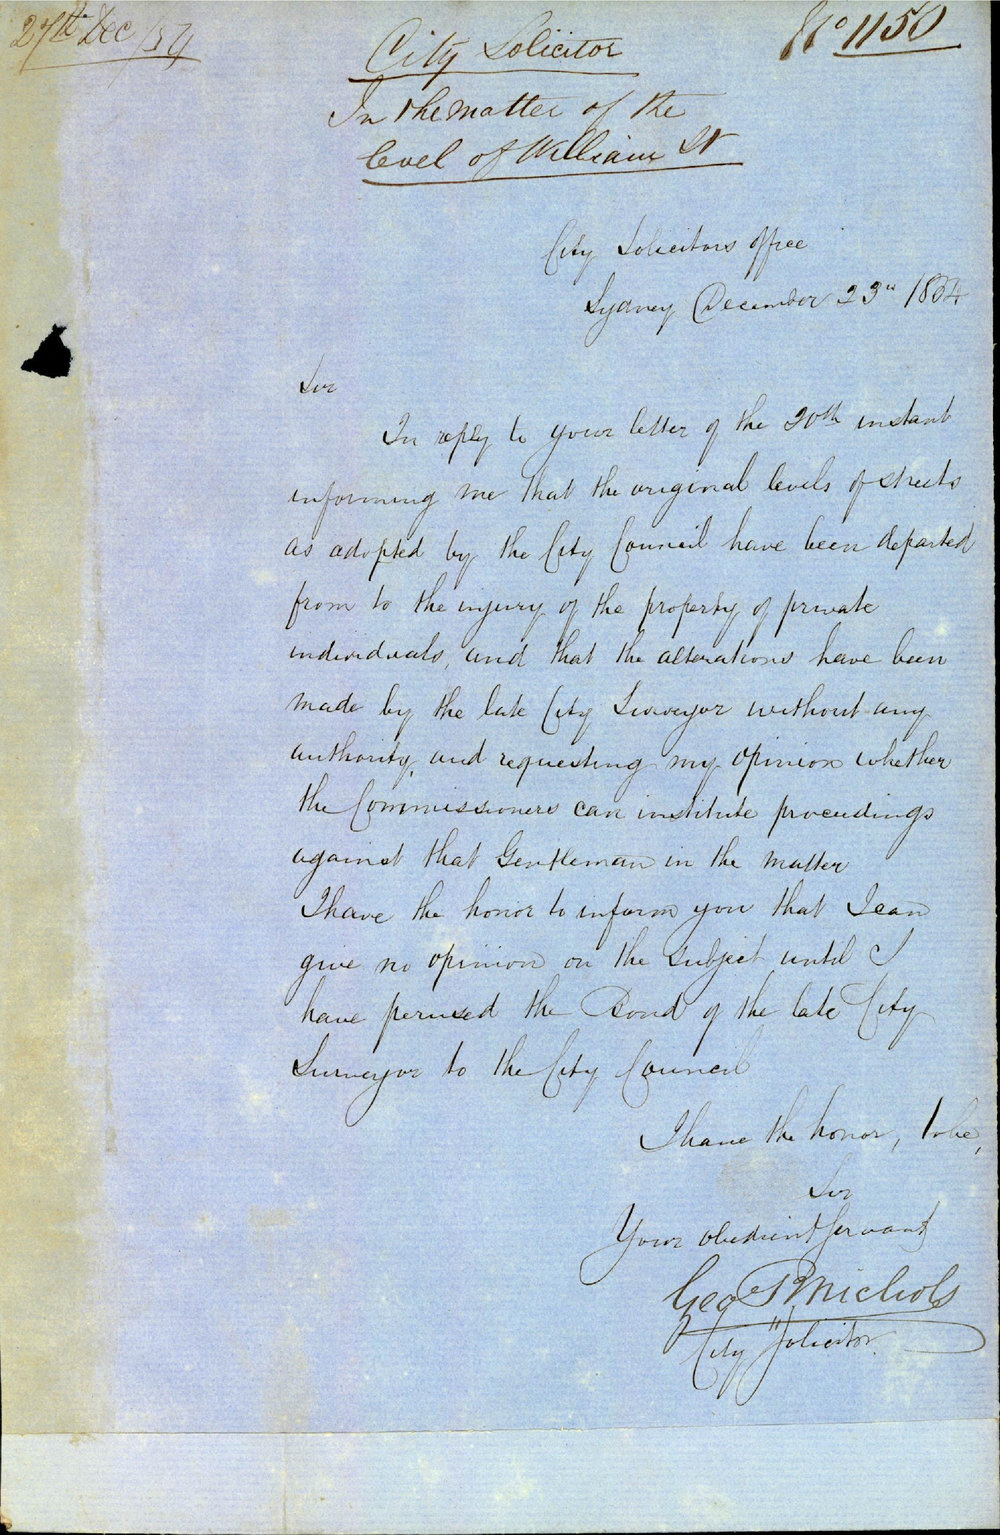 27th Dec /54
No 1150
City Solicitor
In the matter of the
level of William St
City Solicitors Office
Sydney December 23rd 1854
Sir
In reply to your letter of the 20th instant
informing me that the original levels of streets
as adopted by the City Council have been departed
from to the injury of the property of private
individuals, and that the alterations have been
made by the late City Surveyor without any
authority, and requesting my opinion whether
the Commissioners can institute proceedings
against that Gentleman in the matter
I have the honor to inform you that I can
give no opinion on the subject until I
have perused the Bond of the late City
Surveyor to the City Council
I have the honor, to be,
Sir
Your obedient Servant
Geo R Nichols
City Solicitor.